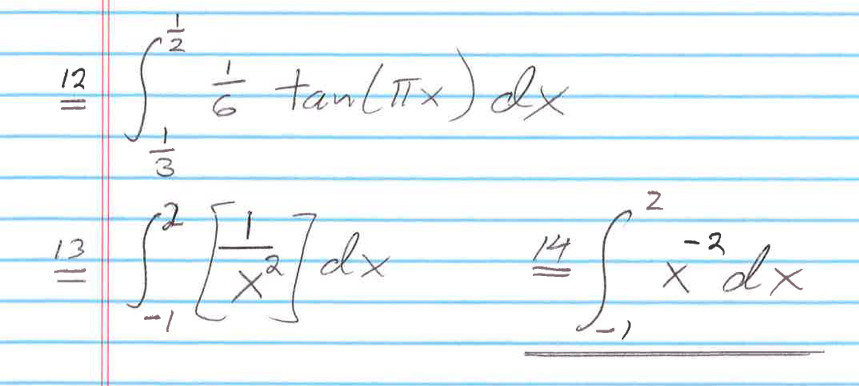 12 ∫_{1/3}^{1/2} 1/6 tan(πx) dx
13 ∫_{-1}^{2} [1/x^2] dx 14 ∫_{-1}^{2} x^{-2} dx